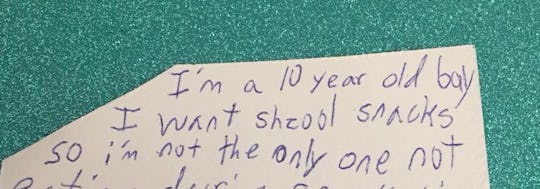 I'm a 10 year old boy
I want shzool snacks
so i'm not the only one not